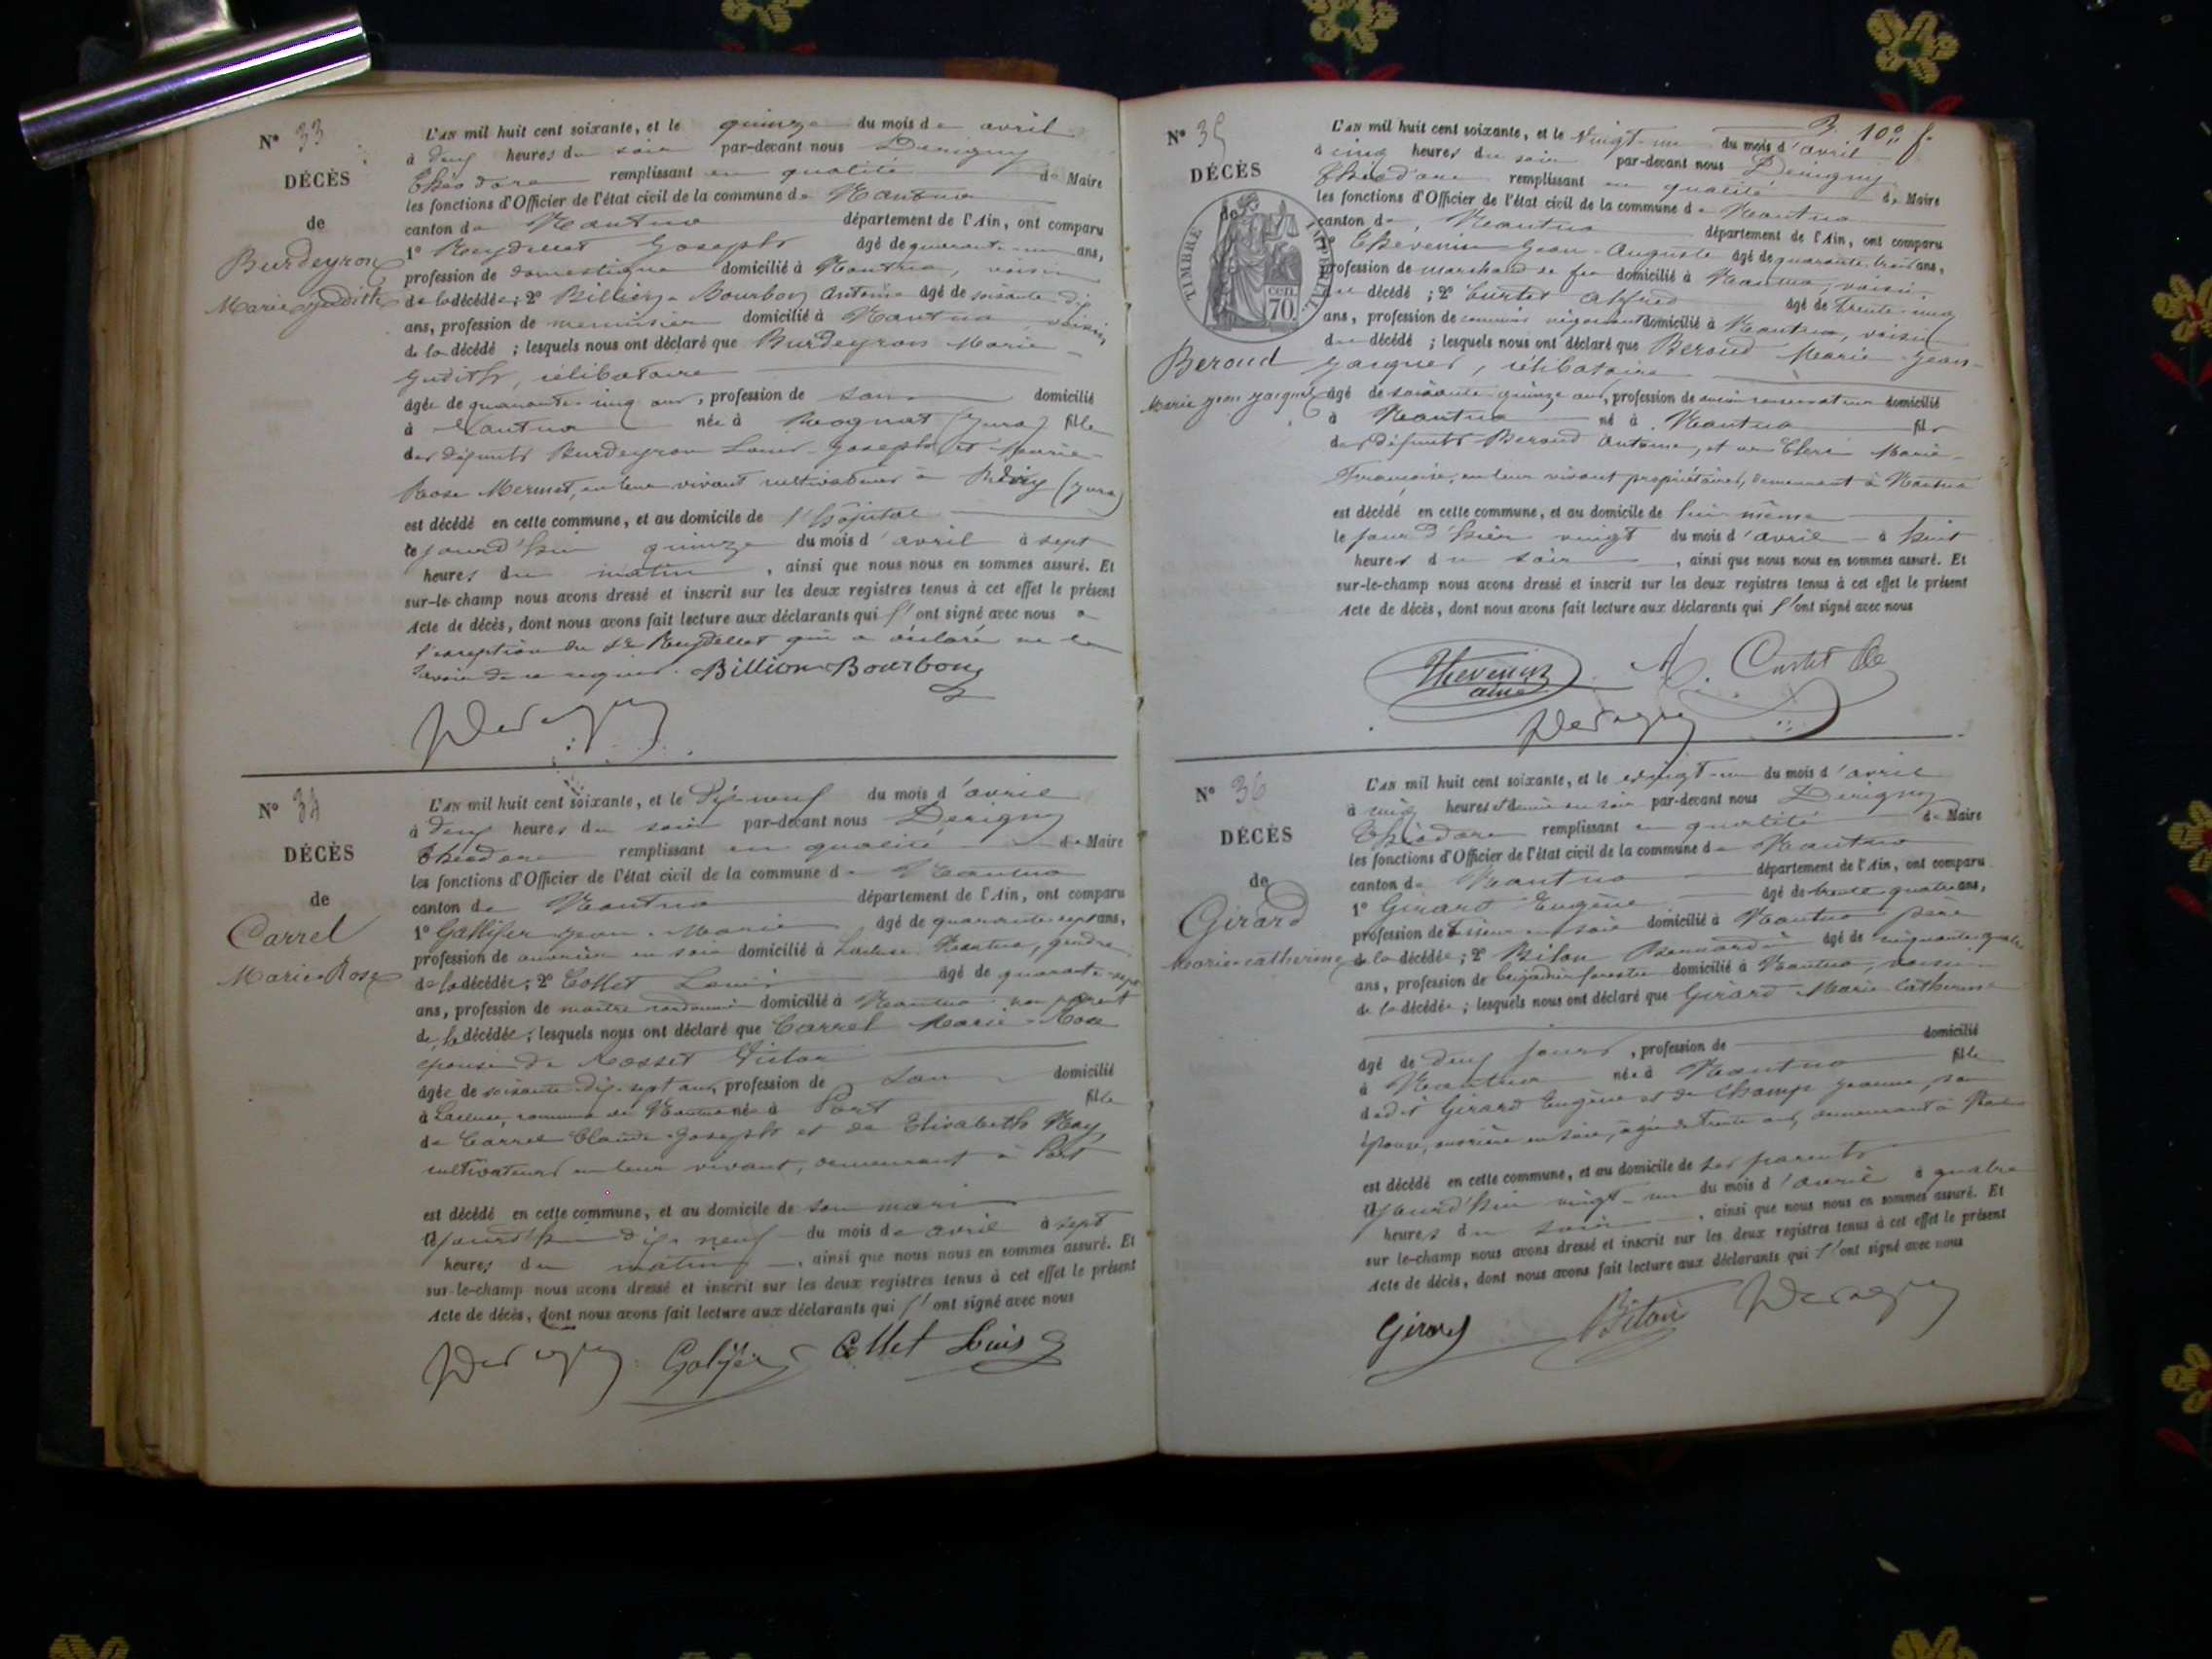 N° 33
DÉCÈS
de
Burdeyron
Marie Judith
L'an mil huit cent soixante, et le quinze du mois de avril
à deux heures du soir par-devant nous Derigny
Théodore remplissant en qualité de Maire
les fonctions d'Officier de l'état civil de la commune de Nantua
canton de Nantua département de l'Ain, ont comparu
1° Reydellet Joseph âgé de quarante-un ans,
profession de domestique domicilié à Nantua, voisin
de la décédée; 2° Billion-Bourbon Antoine âgé de soixante dix
ans, profession de menuisier domicilié à Nantua, voisin
de la décédé ; lesquels nous ont déclaré que Burdeyron Marie
Judith, célibataire
âgée de quarante cinq ans, profession de sans domicilié
à Nantua née à Rognat (Jura) fille
des défunts Burdeyron Louis-Joseph et Marie-
Rose Mermet, en leur vivant cultivateurs à (Jura)
est décédé en cette commune, et au domicile de l'hôpital
cejourd'hui quinze du mois d'avril à sept
heures du matin, ainsi que nous nous en sommes assuré. Et
sur-le-champ nous avons dressé et inscrit sur les deux registres tenus à cet effet le présent
Acte de décès, dont nous avons fait lecture aux déclarants qui l'ont signé avec nous à
l'exception du Sr Reydellet qui a déclaré ne le
savoir de ce requis. Billion-Bourbon
Derigny
N° 34
DÉCÈS
de
Carrel
Marie-Rose
L'an mil huit cent soixante, et le Dix-neuf du mois d'avril
à deux heures du soir par-devant nous Derigny
Théodore remplissant en qualité de Maire
les fonctions d'Officier de l'état civil de la commune de Nantua
canton de Nantua département de l'Ain, ont comparu
1° Jean-Marie âgé de quarante sept ans,
profession de ouvrier en soie domicilié à Lacluse Nantua, gendre
de la décédée; 2° Collet Louis âgé de quarante-sept
ans, profession de maître cordonnier domicilié à Nantua non parent
de la décédée; lesquels nous ont déclaré que Carrel Marie-Rose
épouse de Rosset Victor
âgée de soixante dix-sept ans, profession de sans domicilié
à Lacluse, commune de Nantua née à Port fille
de Carrel Claude-Joseph et de Elisabeth Ray
cultivateurs en leur vivant, demeurant à Port
est décédé en cette commune, et au domicile de son mari
cejourd'hui dix-neuf du mois de avril à sept
heures du matin, ainsi que nous nous en sommes assuré. Et
sur-le-champ nous avons dressé et inscrit sur les deux registres tenus à cet effet le présent
Acte de décès, dont nous avons fait lecture aux déclarants qui l'ont signé avec nous
Derigny Collet Louis
10e f.
N° 35
DÉCÈS
de
TIMBRE IMPÉRIAL
cen. 70
Beroud
Marie Jean Jacques
L'an mil huit cent soixante, et le vingt-un du mois d'avril
à cinq heures du soir par-devant nous Derigny
Théodore remplissant en qualité de Maire
les fonctions d'Officier de l'état civil de la commune de Nantua
canton de Nantua département de l'Ain, ont comparu
1° Thevenin Jean-Auguste âgé de quarante trois ans,
profession de marchand de fer domicilié à Nantua, voisin
du décédé ; 2° Curtet Alfred âgé de trente-cinq
ans, profession de commis négociant domicilié à Nantua, voisin
du décédé ; lesquels nous ont déclaré que Beroud Marie-Jean-
Jacques, célibataire
âgé de soixante-quinze ans, profession de ancien conservateur domicilié
à Nantua né à Nantua fils
des défunts Beroud Antoine, et de Clerc Marie-
Françoise, en leur vivant propriétaires, demeurant à Nantua
est décédé en cette commune, et au domicile de lui-même
le jour d'hier vingt du mois d'avril à huit
heures du soir, ainsi que nous nous en sommes assuré. Et
sur-le-champ nous avons dressé et inscrit sur les deux registres tenus à cet effet le présent
Acte de décès, dont nous avons fait lecture aux déclarants qui l'ont signé avec nous
Thevenin A. Curtet
aîné
Derigny
N° 36
DÉCÈS
de
Girard
Marie-catherine
L'an mil huit cent soixante, et le vingt-un du mois d'avril
à cinq heures et demie du soir par-devant nous Derigny
Théodore remplissant en qualité de Maire
les fonctions d'Officier de l'état civil de la commune de Nantua
canton de Nantua département de l'Ain, ont comparu
1° Girard Eugène âgé de trente quatre ans,
profession de tisseur en soie domicilié à Nantua père
de la décédée; 2° Biton Bernardin âgé de cinquante quatre
ans, profession de brigadier forestier domicilié à Nantua, voisin
de la décédée; lesquels nous ont déclaré que Girard Marie Catherine
âgé de deux jours, profession de domicilié
à Nantua née à Nantua fille
dudit Girard Eugène et de Champ Jeanne, son
épouse, ouvrière en soie, âgée de trente ans, demeurant à Nantua
est décédé en cette commune, et au domicile de ses parents
cejourd'hui vingt-un du mois d'avril à quatre
heures du soir, ainsi que nous nous en sommes assuré. Et
sur le-champ nous avons dressé et inscrit sur les deux registres tenus à cet effet le présent
Acte de décès, dont nous avons fait lecture aux déclarants qui l'ont signé avec nous
Girard Biton Derigny